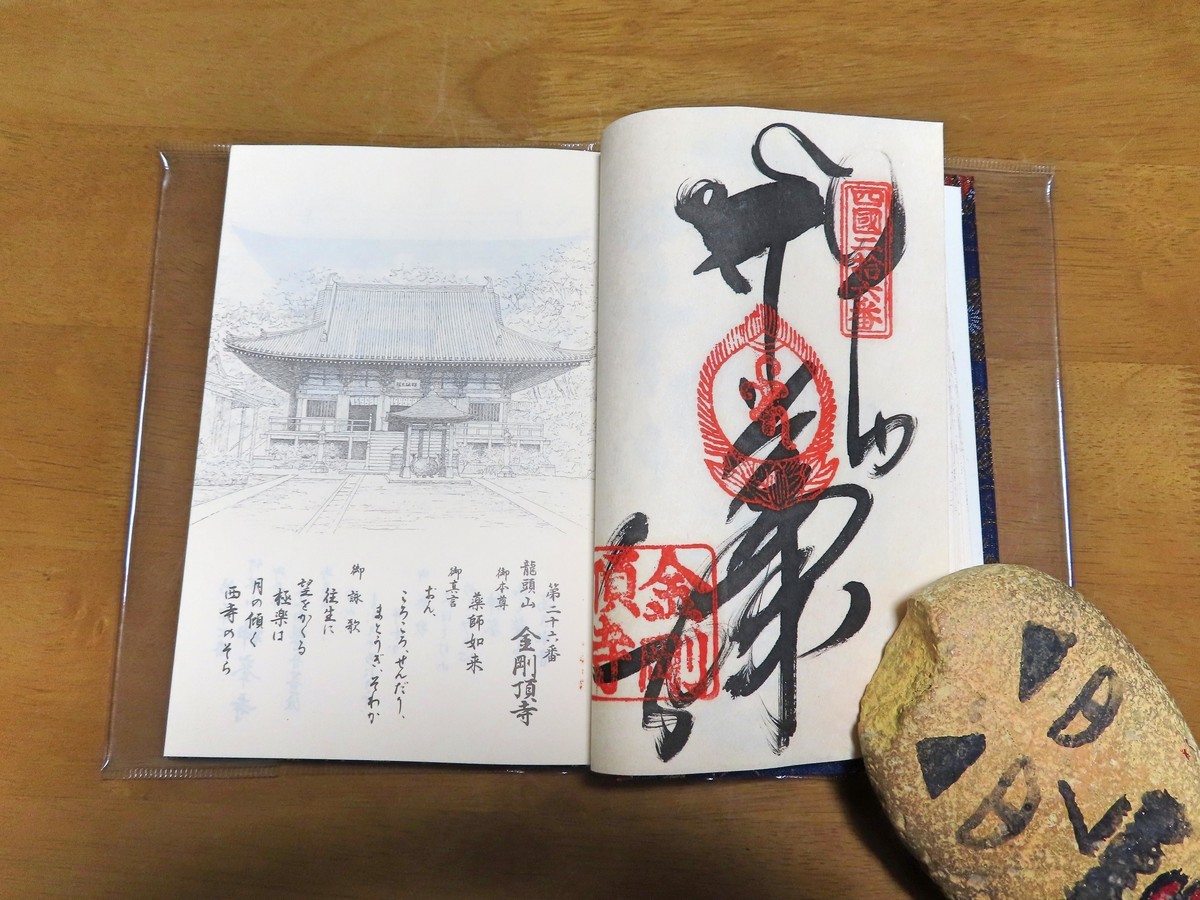 四國二拾六番
金剛
頂寺
第二十六番
龍頭山 金剛頂寺
御本尊
薬師如来
御真言
おん、
ころころ、せんだり、
まとうぎ、そわか
御詠歌
往生に
望をかくる
極楽は
月の傾く
西寺のそら